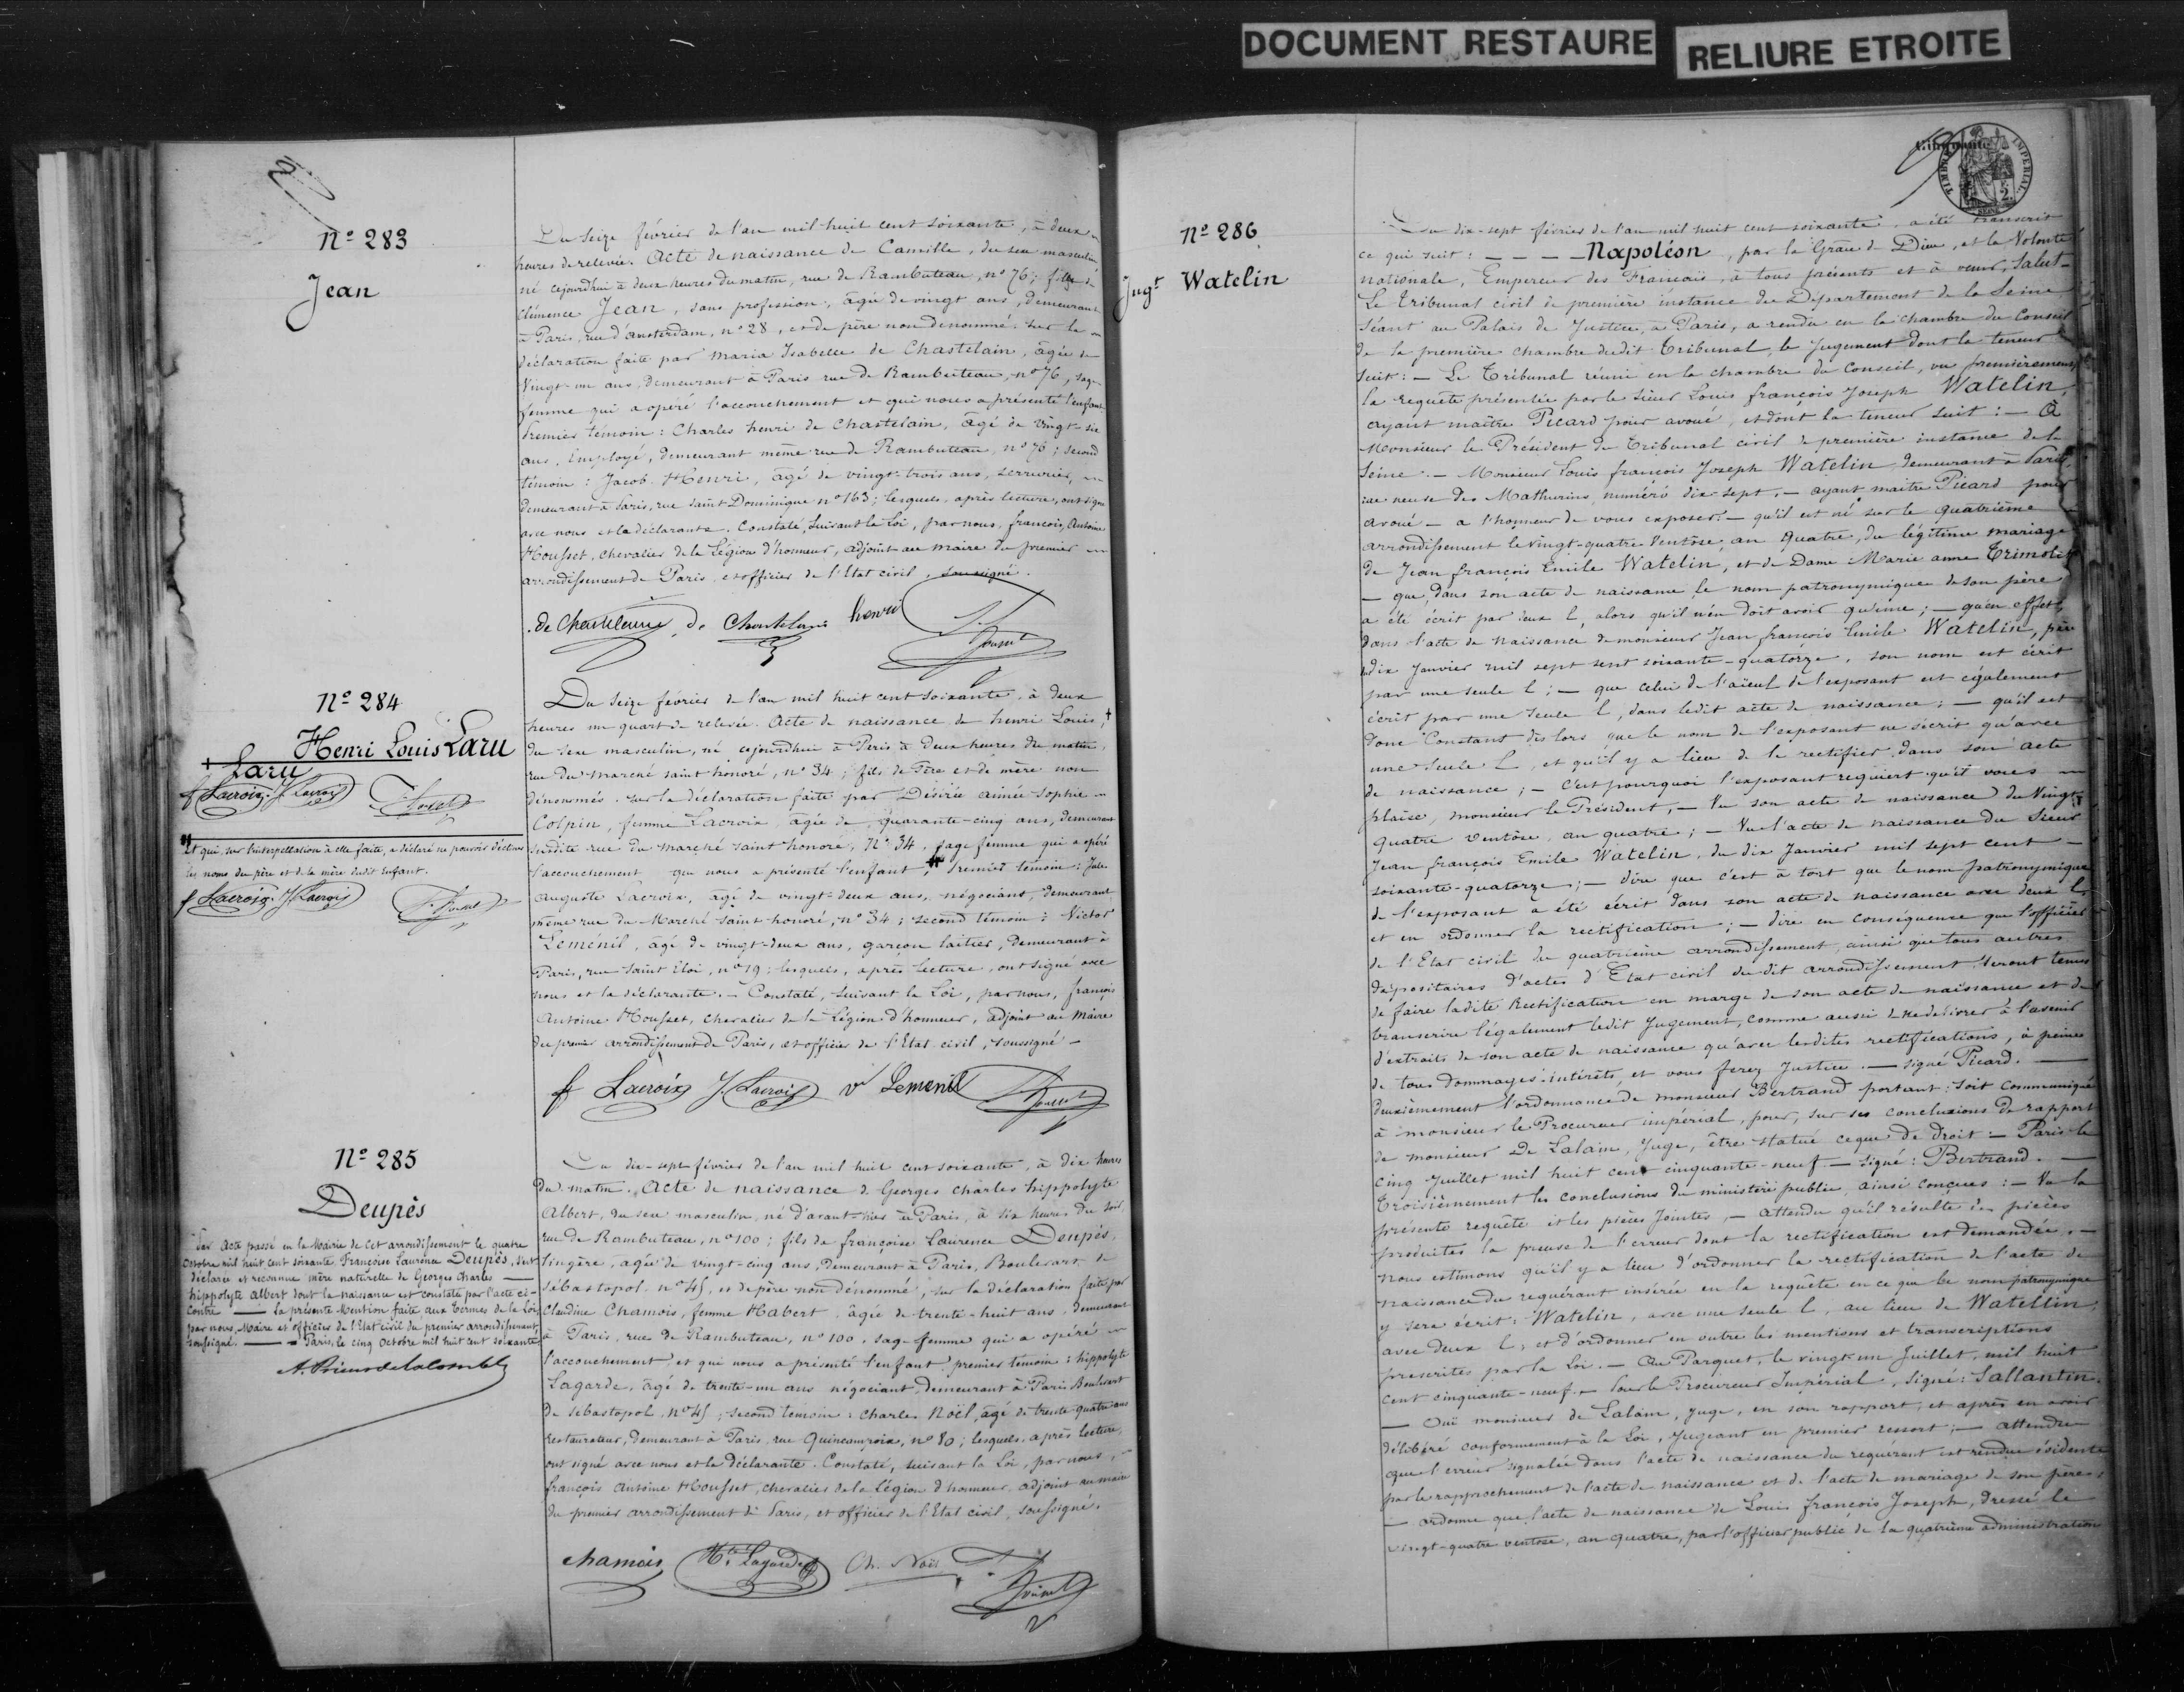 DOCUMENT RESTAURE
RELIURE ETROITE
Nº 283
Jean
Du seize février de l'an mil huit cent soixante, à deux
heures de relevée. Acte de naissance de Camille, du sexe masculin
né cejourdhui à deux heures du matin, rue de Rambuteau, nº 76; fils de
Clémence Jean, sans profession, âgée de vingt ans, demeurant
à Paris, rue d'amsterdam, nº 28, et de père non dénommé. Sur la
déclaration faite par Maria Isabelle de Chastelain, âgée de
Vingt-un ans, demeurant à Paris rue de Rambuteau, nº 76, sage-
femme qui a opéré l'accouchement et qui nous a présenté l'enfant
Premier témoin: Charles henri de Chastelain, âgé de Vingt-six
ans, Employé, demeurant même rue de Rambuteau, nº 76; second
témoin: Jacob Henri, âgé de vingt-trois ans, serrurier,
demeurant à Paris, rue Saint Dominique nº 163; lesquels, après lecture, ont signé
avec nous et la déclarante. Constaté, Suivant la Loi, par nous, françois, Antoine
Housset, chevalier de la Légion d'honneur, adjoint au maire du premier
arrondissement de Paris, et officier de l'Etat civil, soussigné.
de Chastelain de Chastelain henri
Nº 284
Henri Louis Laru
+ Laru
f Lacroix J. Lacroix
Et qui, sur l'interpellation à elle faite, a déclaré ne pouvoir déclarer
les noms du père et de la mère dudit enfant.
f Lacroix J Lacroix
Du seize février de l'an mil huit cent soixante, à deux
heures un quart de relevée. Acte de naissance de henri Louis, +
du sexe masculin, né cejourdhui à Paris à deux heures du matin,
rue du marché saint honoré, nº 34; fils de Père et de mère non
dénommés. sur la déclaration faite par Désirée aimée Sophie
Colpin, femme Lacroix, âgée de quarante-cinq ans, demeurant
susdite rue du marché saint honoré, nº 34, sage femme qui a opéré
l'accouchement qui nous a présenté l'enfant, Premier témoin: Jules
Auguste Lacroix, âgé de vingt-deux ans, négociant, demeurant
même rue du Marché saint-honoré, nº 34; second témoin: Victor
Leménil, âgé de vingt-deux ans, garçon laitier, demeurant à
Paris, rue Saint Eloi, nº 19; lesquels, après lecture, ont signé avec
nous et la déclarante. — Constaté, suivant la Loi, par nous, françois
Antoine Housset, Chevalier de la Légion d'honneur, adjoint au Maire
du premier arrondissement de Paris, et officier de l'Etat civil, soussigné —
f Lacroix J. Lacroix Vr Lemenil
Nº 285
Deupès
Par acte passé en la Mairie de Cet arrondissement le quatre
octobre mil huit cent soixante, Françoise Laurence Deupès, s'est
déclarée et reconnue mère naturelle de Georges Charles —
hippolyte Albert dont la naissance est constatée par l'acte ci-
contre. — La présente Mention faite aux termes de la Loi
par nous, Maire et officier de l'Etat civil du premier arrondissement,
soussigné. — Paris, le cinq Octobre mil huit cent soixante
Du dix-sept février de l'an mil huit cent soixante, à dix heures
du matin. Acte de naissance de Georges charles hippolyte
Albert, du sexe masculin, né d'avant-hier à Paris, à six heures du soir,
rue de Rambuteau, nº 100; fils de françoise Laurence Deupès,
lingère, âgée de vingt-cinq ans, demeurant à Paris, Boulevart de
Sébastopol nº 45, et de père non dénommé; sur la déclaration faite par
Claudine Chamois, femme Habert, âgée de trente-huit ans, demeurant
à Paris, rue de Rambuteau, nº 100, sage-femme qui a opéré
l'accouchement et qui nous a présenté l'enfant; premier témoin: hippolyte
Lagarde, âgé de trente-un ans négociant, demeurant à Paris Boulevart
de Sébastopol, Nº 45; second témoin: Charles Noël, âgé de trente-quatre ans
restaurateur, demeurant à Paris, rue Quincampoix, nº 80; lesquels, après lecture,
ont signé avec nous et la déclarante. Constaté, suivant la Loi, par nous, —
françois Antoine Housset, chevalier de la Légion d'honneur, adjoint au maire
du premier arrondissement de Paris, et officier de l'Etat civil, soussigné.
chamois Hte Lagarde Ch. Noël
TIMBRE IMPERIAL
Nº 286
Jugt Watelin
Du dix-sept février de l'an mil huit cent soixante, a été transcrit
ce qui suit: — — — Napoléon, par la Grâce de Dieu, et la Volonté
nationale, Empereur des Français, à tous présents et à venir, Salut —
Le Tribunal civil de première instance du Département de la Seine,
Séant au Palais de Justice, à Paris, a rendu en la chambre du Conseil
de la première chambre dudit Tribunal, le Jugement dont la teneur
suit: — Le Tribunal réuni en la chambre du Conseil, vu premièrement
la requête présentée par le Sieur Louis françois Joseph Watelin,
ayant maître Picard pour avoué, et dont la teneur suit: — à
Monsieur le Président du Tribunal civil de première instance de la
Seine. — Monsieur Louis françois Joseph Watelin demeurant à Paris,
rue neuve des Mathurins, numéro dix-sept, — ayant maître Picard pour
avoué — a l'honneur de vous exposer: — qu'il est né sur le quatrième
arrondissement le vingt-quatre Ventôse, an Quatre, du légitime mariage
de Jean françois Emile Watelin, et de Dame Marie anne
— que, dans son acte de naissance le nom patronymique de son père
a été écrit par deux l, alors qu'il n'en doit avoir qu'une; — qu'en effet,
dans l'acte de naissance de monsieur Jean françois Emile Watelin, père
du dix Janvier mil sept sent soixante-quatorze, son nom est écrit
par une seule l; — que celui de l'aïeul de l'exposant est également
écrit par une seule l, dans ledit acte de naissance; — qu'il est
donc Constant dès lors que le nom de l'exposant ne s'écrit qu'avec
une seule l, et qu'il y a lieu de le rectifier dans son acte
de naissance; — c'est pourquoi l'exposant requiert qu'il vous
plaise, monsieur le Président, — Vu son acte de naissance du Vingt-
quatre ventôse, an quatre; — Vu l'acte de naissance du Sieur
Jean françois Emile Watelin, du dix Janvier mil sept cent —
soixante-quatorze; — dire que c'est à tort que le nom patronymique
de l'exposant a été écrit dans son acte de naissance avec deux l
et en ordonner la rectification; — dire en conséquence que l'officier
de l'Etat civil du quatrième arrondissement, ainsi que tous autres
dépositaires d'actes d'Etat civil du dit arrondissement seront tenus
de faire ladite Rectification en marge de son acte de naissance et de
transcrire légalement ledit Jugement, comme aussi de ne délivrer à l'avenir
d'extraits de son acte de naissance qu'avec lesdites rectifications, à peines
de tous dommages-intérêts, et vous ferez Justice. — signé Picard. —
Deuxièmement l'ordonnance de monsieur Bertrand portant: soit communiqué
à monsieur le Procureur impérial, pour, sur ses conclusions et rapport
de monsieur De Lalain, Juge, être statué ce que de droit: — Paris le
cinq Juillet mil huit cent cinquante-neuf — signé: Bertrand. —
Troisièmement les conclusions du ministère public, ainsi conçues: — Vu la
présente requête et les pièces jointes, — attendu qu'il résulte des pièces
produites la preuve de l'erreur dont la rectification est demandée. —
nous estimons qu'il y a lieu d'ordonner la rectification de l'acte de
naissance du requérant inséré en la requête en ce que le nom patronymique
y sera écrit: Watelin, avec une seule l, au lieu de Watellin,
avec deux l; et d'ordonner en outre les mentions et transcriptions
prescrites par la Loi. — Au Parquet, le vingt-un Juillet, mil huit
cent cinquante-neuf. — Pour le Procureur Impérial, signé: Sallantin.
— Ouï monsieur de Lalain, Juge, en son rapport, et après en avoir
délibéré conformément à la Loi, Jugeant en premier ressort; — attendu
que l'erreur signalée dans l'acte de naissance du requérant est rendue évidente
par le rapprochement de l'acte de naissance et de l'acte de mariage de son père;
— ordonne que l'acte de naissance de Louis françois Joseph, dressé le
vingt-quatre ventôse, an quatre, par l'officier public de la quatrième administration